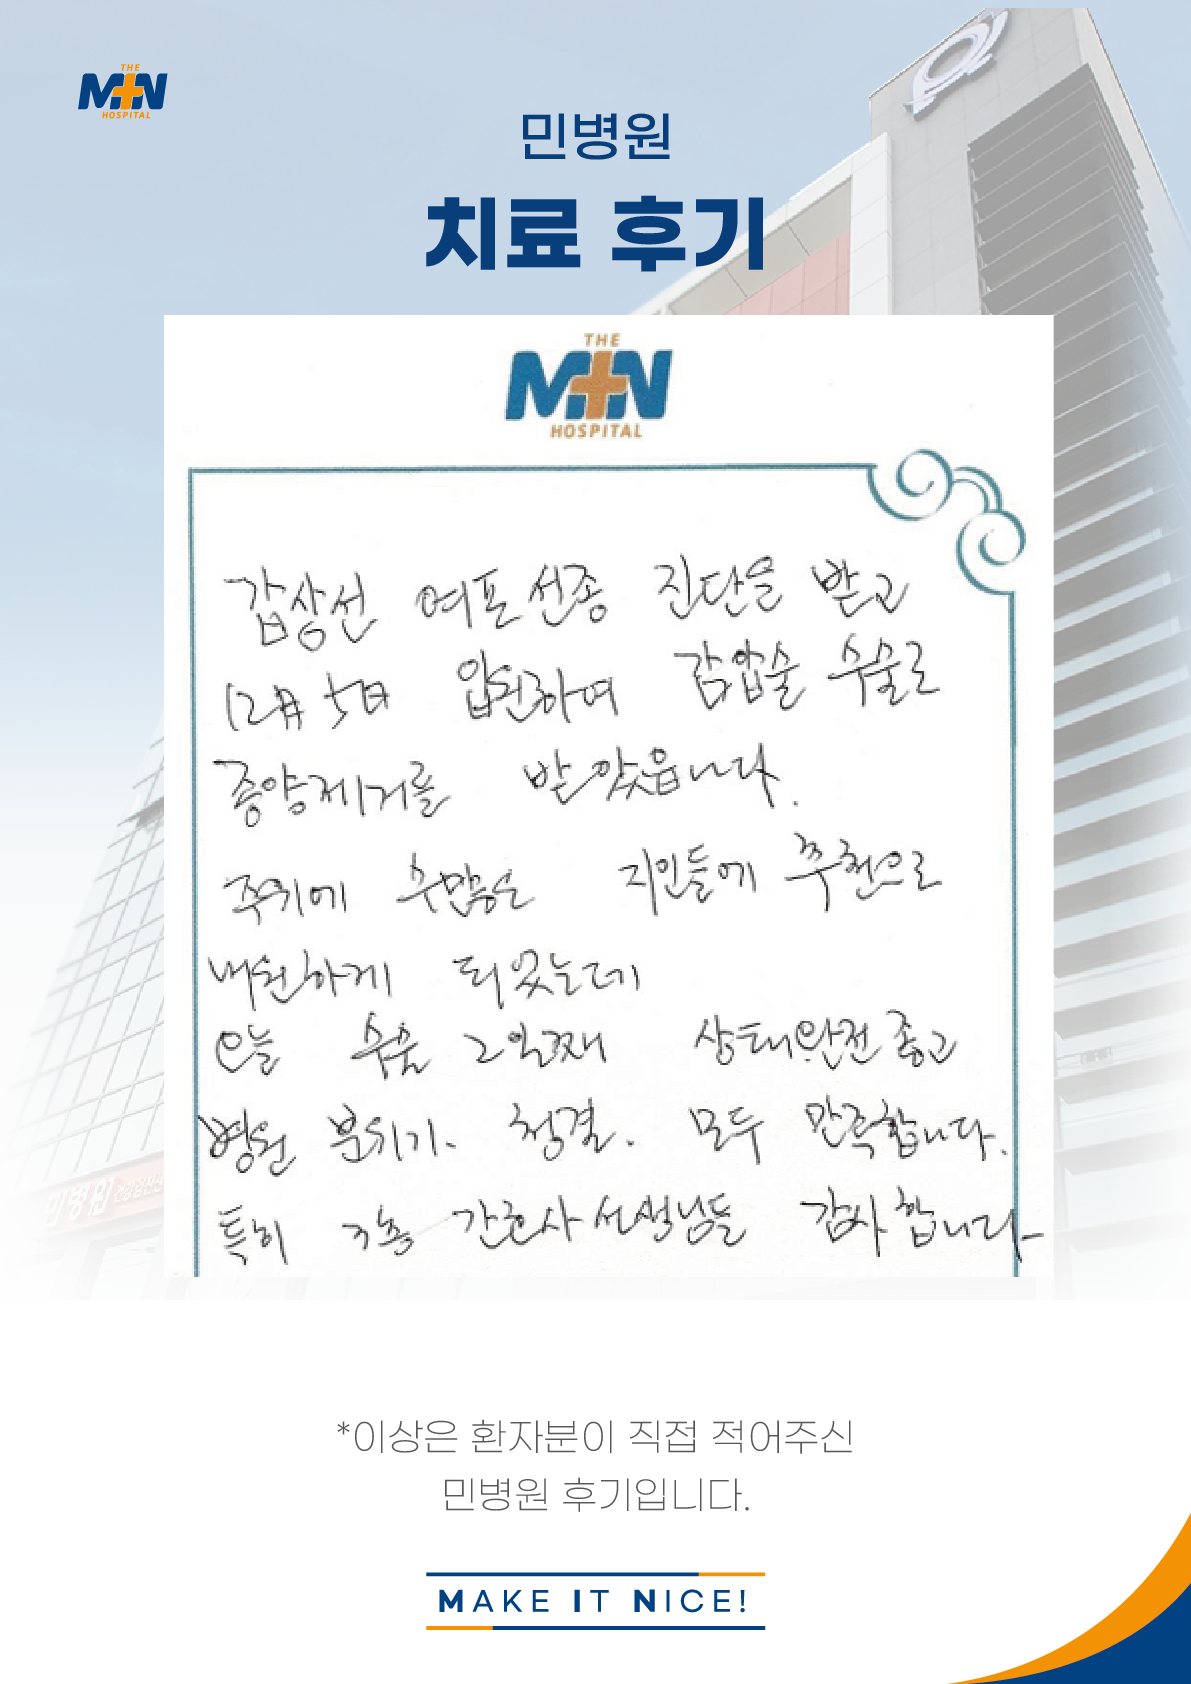 THE
MIN
HOSPITAL
민병원
치료 후기
THE
MIN
HOSPITAL
갑상선 여포선종 진단을 받고
12月 5日 입원하여 감압술 수술로
종양제거를 받았읍니다.
주위에 수많은 지인들에 추천으로
내원하게 되었는데
오늘 수술 2일째 상태 완전 좋고
병원 분위기. 청결. 모두 만족합니다.
특히 3층 간호사 선생님들 감사합니다
민병원 건강검진센
*이상은 환자분이 직접 적어주신
민병원 후기입니다.
MAKE IT NICE!